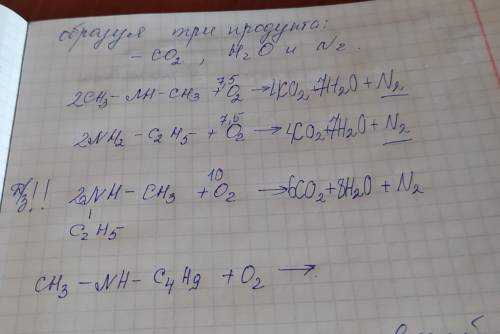 образуя три продукта:
– CO2, H2O и N2.
2CH3 – NH – CH3 + 7,5 O2 → 4CO2 + 7H2O + N2
2NH2 – C2H5 + 7,5 O2 → 4CO2 + 7H2O + N2
2NH – CH3 + 10 O2 → 6CO2 + 8H2O + N2
C2H5
CH3 – NH – C4H9 + O2 →